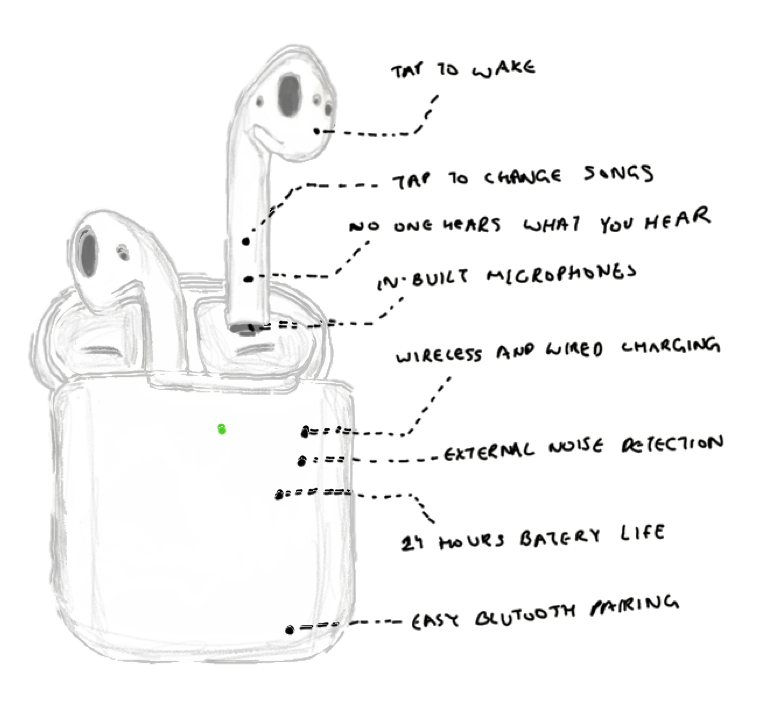 TAP TO WAKE
TAP TO CHANGE SONGS
NO ONE HEARS WHAT YOU HEAR
IN-BUILT MICROPHONES
WIRELESS AND WIRED CHARGING
EXTERNAL NOISE DETECTION
24 HOURS BATERY LIFE
EASY BLUTUOTH PAIRING